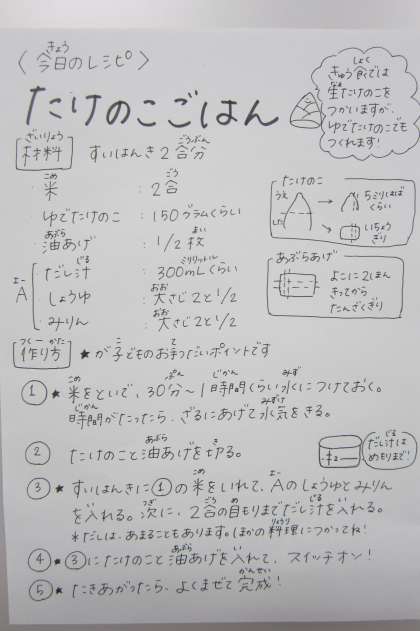 〈今日のレシピ〉
たけのこごはん
きゅう食では
生たけのこを
つかいますが、
ゆでたけのこでも
つくれます!
材料 すいはんき2合分
・米 : 2合
・ゆでたけのこ : 150グラムくらい
・油あげ : 1/2枚
A
・だし汁 : 300mLくらい
・しょうゆ : 大さじ2と1/2
・みりん : 大さじ2と1/2
たけのこ
うえ
した
5ミリはば
くらい
いちょう
ぎり
あぶらあげ
よこに2ほん
きってから
たんざくぎり
作り方 ★が子どものお手つだいポイントです
①★米をといで、30分〜1時間くらい水につけておく。
時間がたったら、ざるにあげて水気をきる。
② たけのこと油あげを切る。
だし汁は
めもりまで!
③★すいはんきに①の米をいれて、Aのしょうゆとみりん
を入れる。次に、2合の目もりまでだし汁を入れる。
*だしは、あまることもあります。ほかの料理につかってね!
④★③にたけのこと油あげを入れて、スイッチオン!
⑤★たきあがったら、よくまぜて完成!